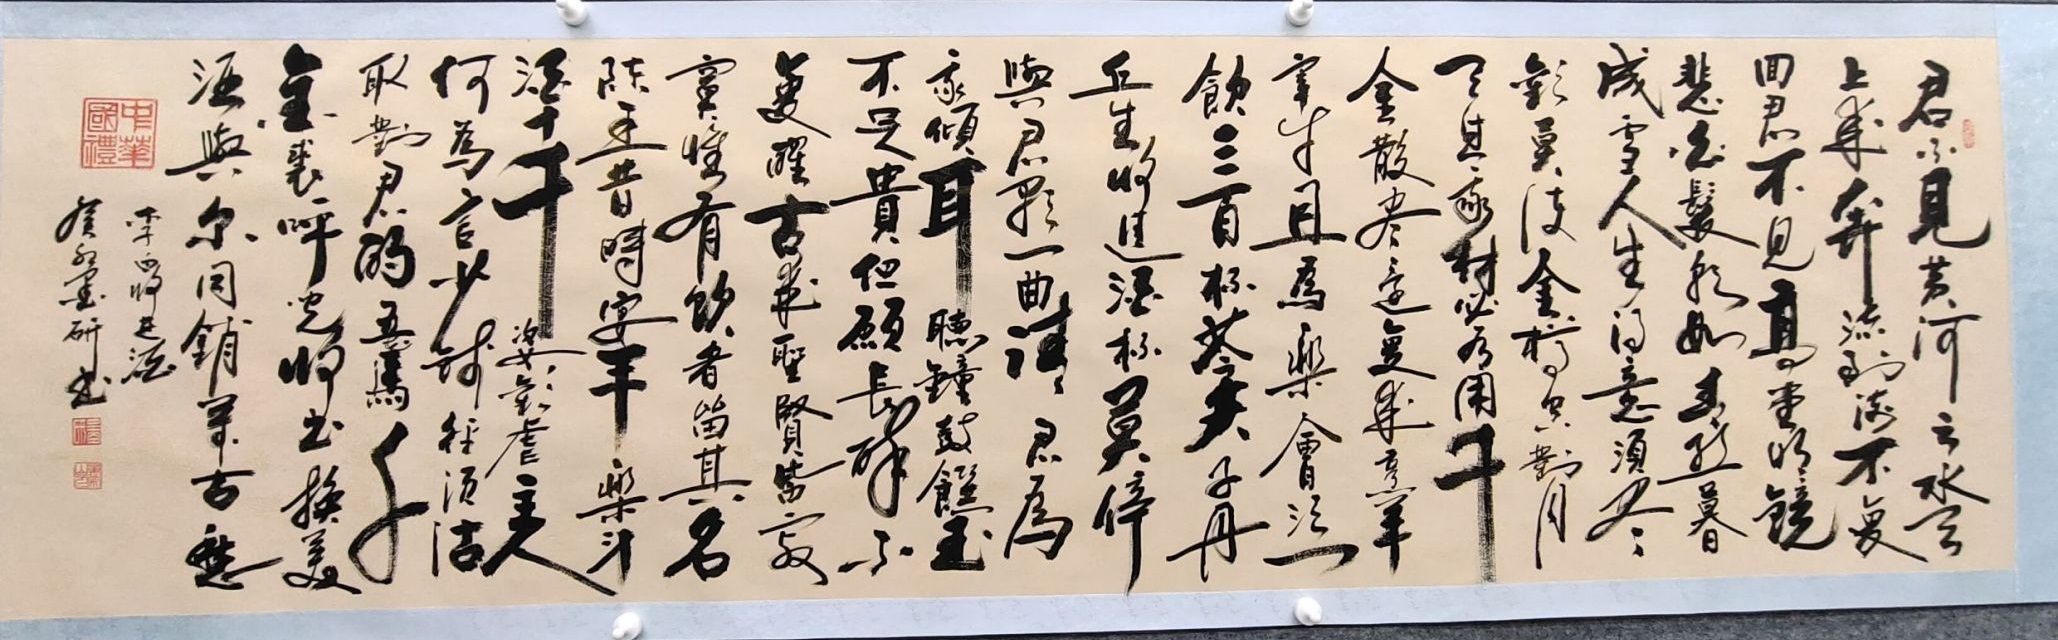 君不見黃河之水天
上來奔流到海不复
回君不見高堂明鏡
悲白髮朝如青絲暮
成雪人生得意須盡
歡莫使金樽空對月
天生我材必有用千
金散盡還复來烹羊
宰牛且為樂會須一
飲三百杯岑夫子丹
丘生將進酒杯莫停
與君歌一曲請君為
我傾耳聽鐘鼓饌玉
不足貴但願長醉不
复醒古來聖賢皆寂
寞惟有飲者留其名
陳王昔時宴平樂斗
酒十千恣歡謔主人
何為言少錢徑須沽
取對君酌五馬千
金裘呼兒將出換美
酒與尔同銷萬古愁
李白將進酒
墨研書
中華國禮